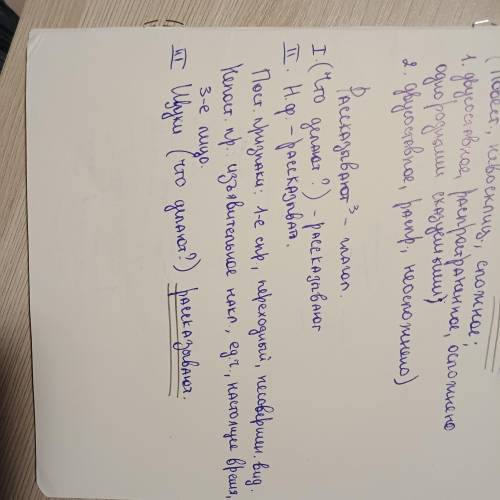 (Повест, невосклиц, сложное;
1. двусоставное, распространенное, осложнено
однородными сказуемыми)
2. двусоставное, распр, неосложнено)
Рассказывают³ - глагол.
I. (Что делают?) - рассказывают
II. Н.ф. - рассказыват.
Пост. признаки: 1-е спр, переходный, несовершен. вид.
Непост. пр: изъявительное накл, ед.ч., настоящее время,
3-е лицо.
III Щуки (что делают?) рассказывают.